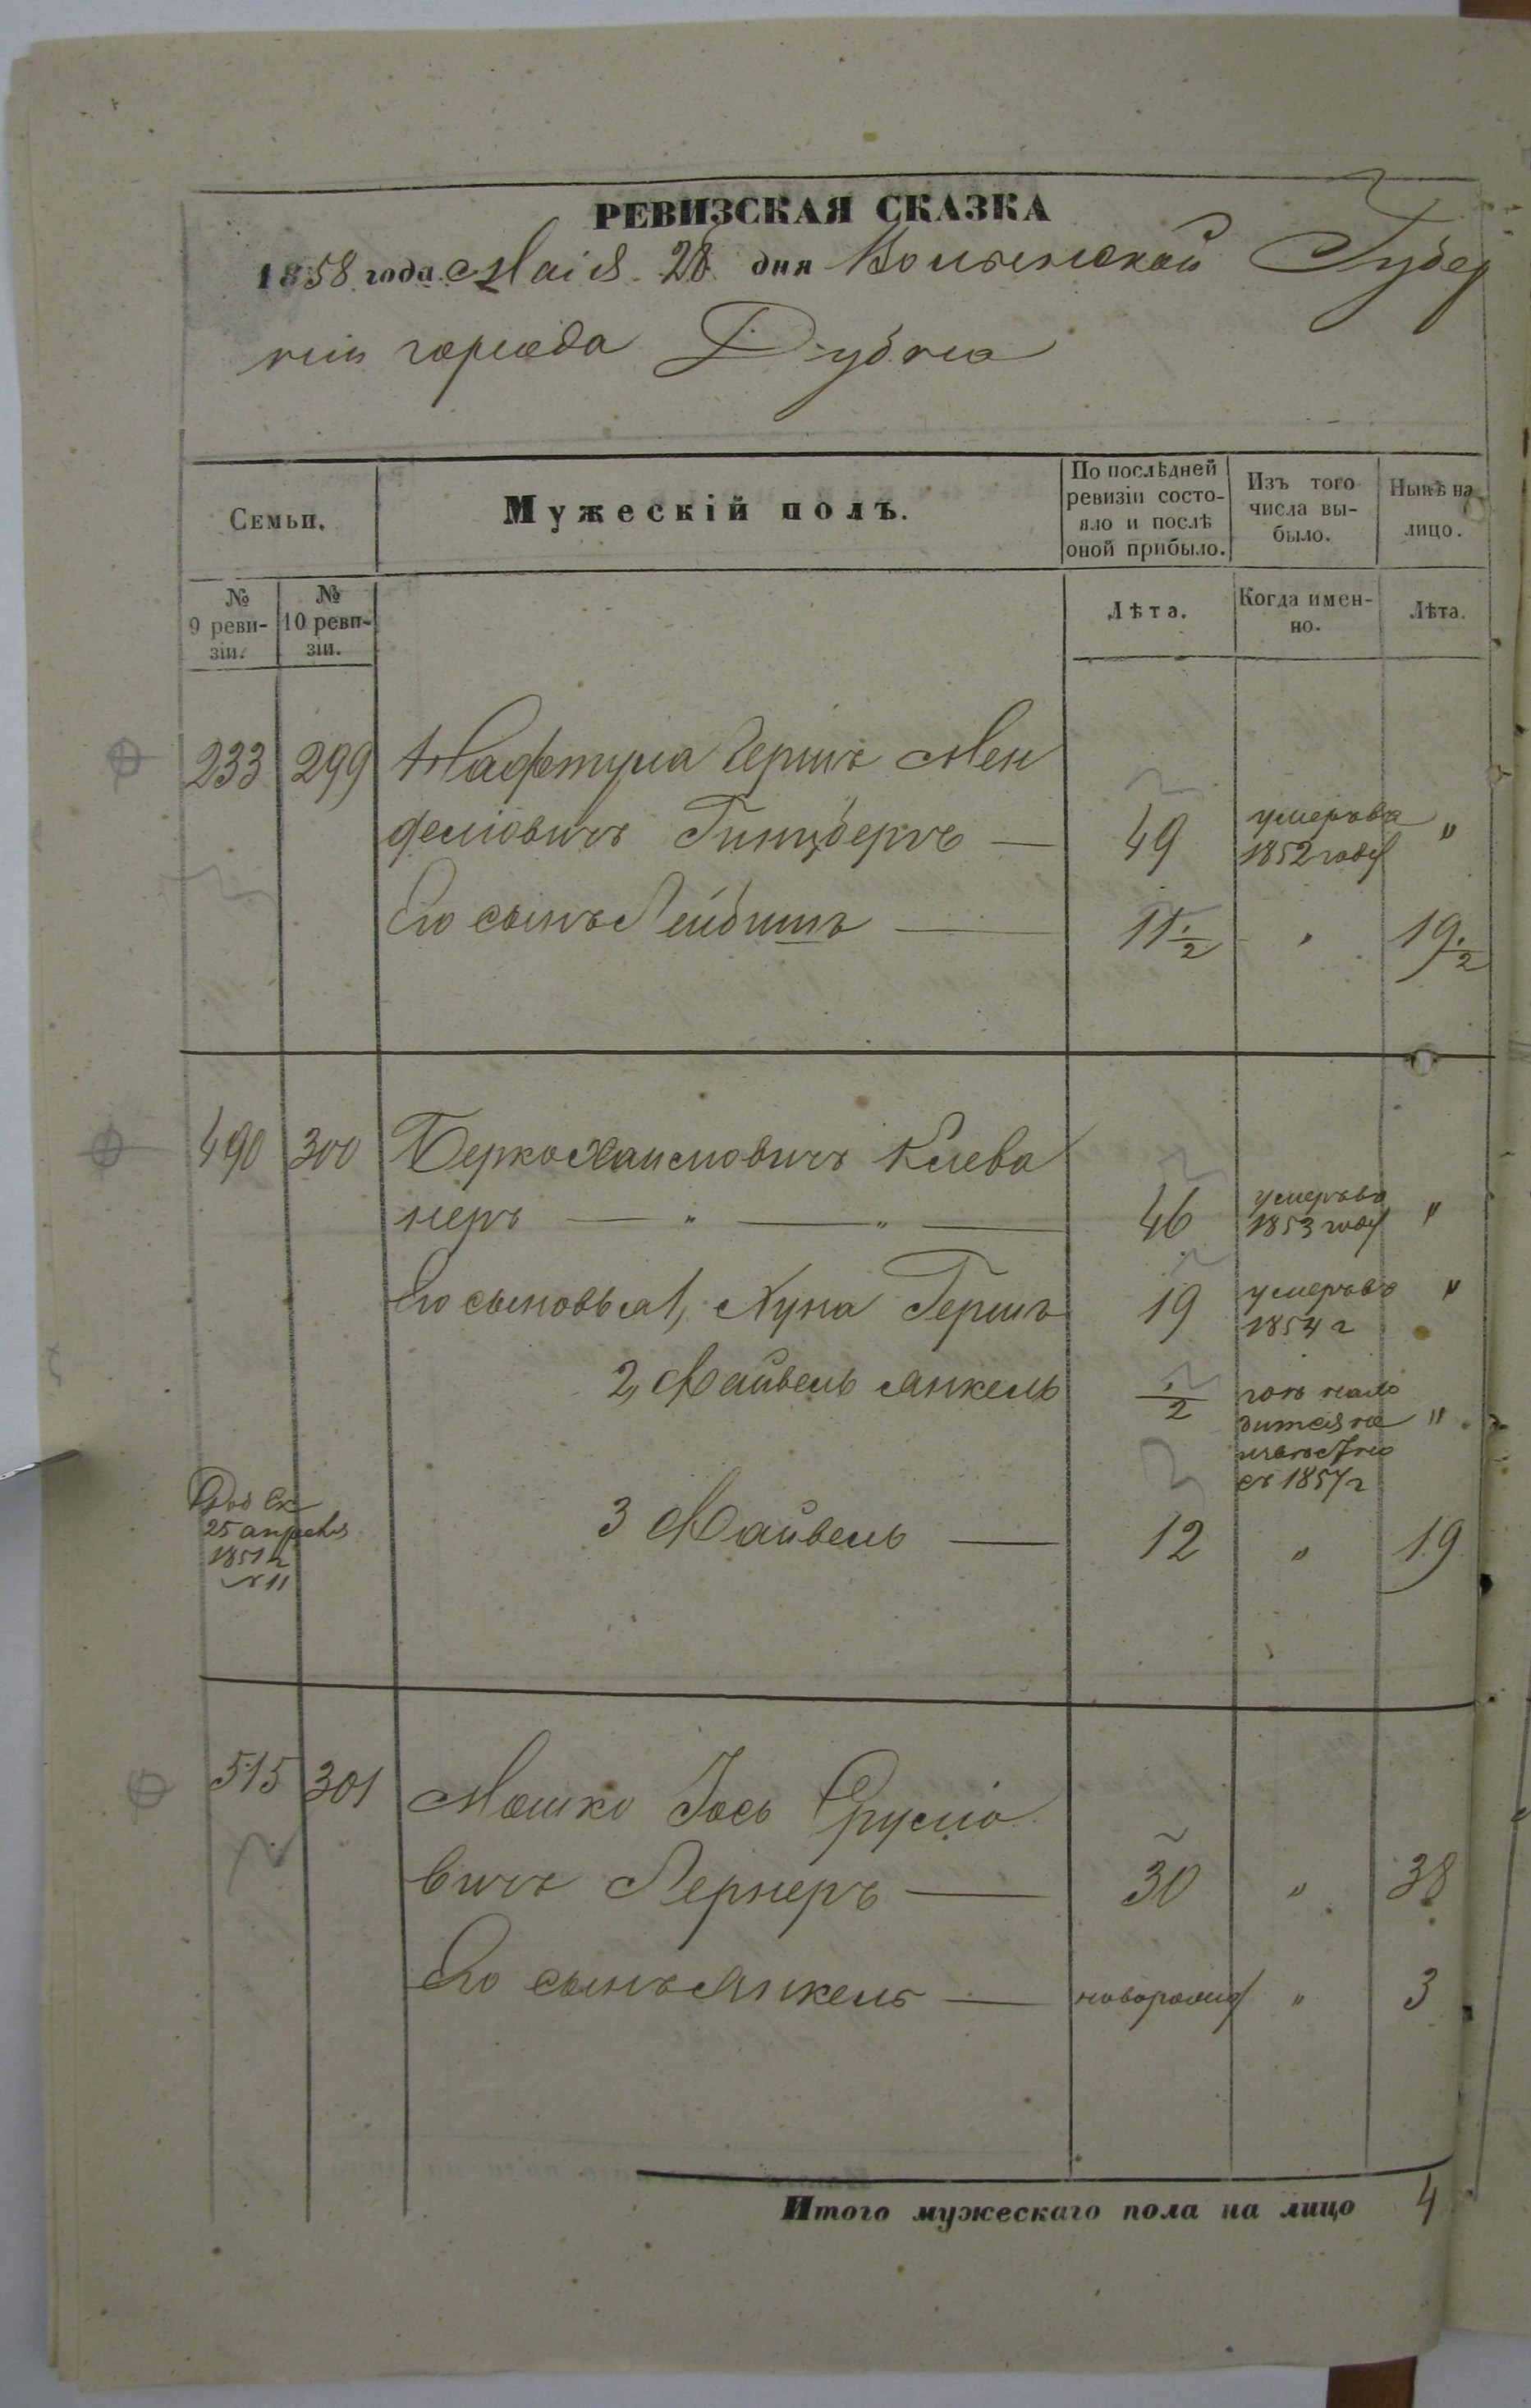 РЕВИЗСКАЯ СКАЗКА
1858 года Маія 28 дня Волынской Губер
ніи города Дубна
Семьи.
Мужескій полъ.
По послѣдней ревизіи состо-
яло и послѣ
оной прибыло.
Изъ того
числа вы-
было.
Нынѣ на
лицо.
№
9 реви-
зіи.
№
10 реви-
зіи.
Лѣта.
Когда имен-
но.
Лѣта.
233 299 Нафтула Гершъ Мен
делiовичъ Гинцбергъ — 49 умеръ въ 1852 году "
Его сынъ Лейбишъ — 11 1/2 " 19 1/2
490 300 Берко Хаимовичъ Клева
неръ — " — " — 46 умеръ въ 1853 году "
Его сыновья 1, Нуна Гершъ 19 умеръ въ 1854 г "
2, Файвель Янкель 1/2
съ 1857 г "
3 Файвель — 12 " 19
25 апреля
1851 г
№ 11
515 301 Мошко Іось Сруліо
вичъ Лернеръ — 30 " 38
Его сынъ Янкель — новорожд " 3
Итого мужескаго пола на лицо 4